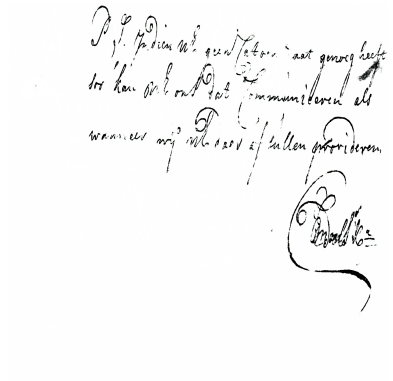 P.S. Indien UE geen Catoen aat genoeg heeft
soo kan UE ons dat Communiceren als
wanneer wij UE daar af sullen provideren